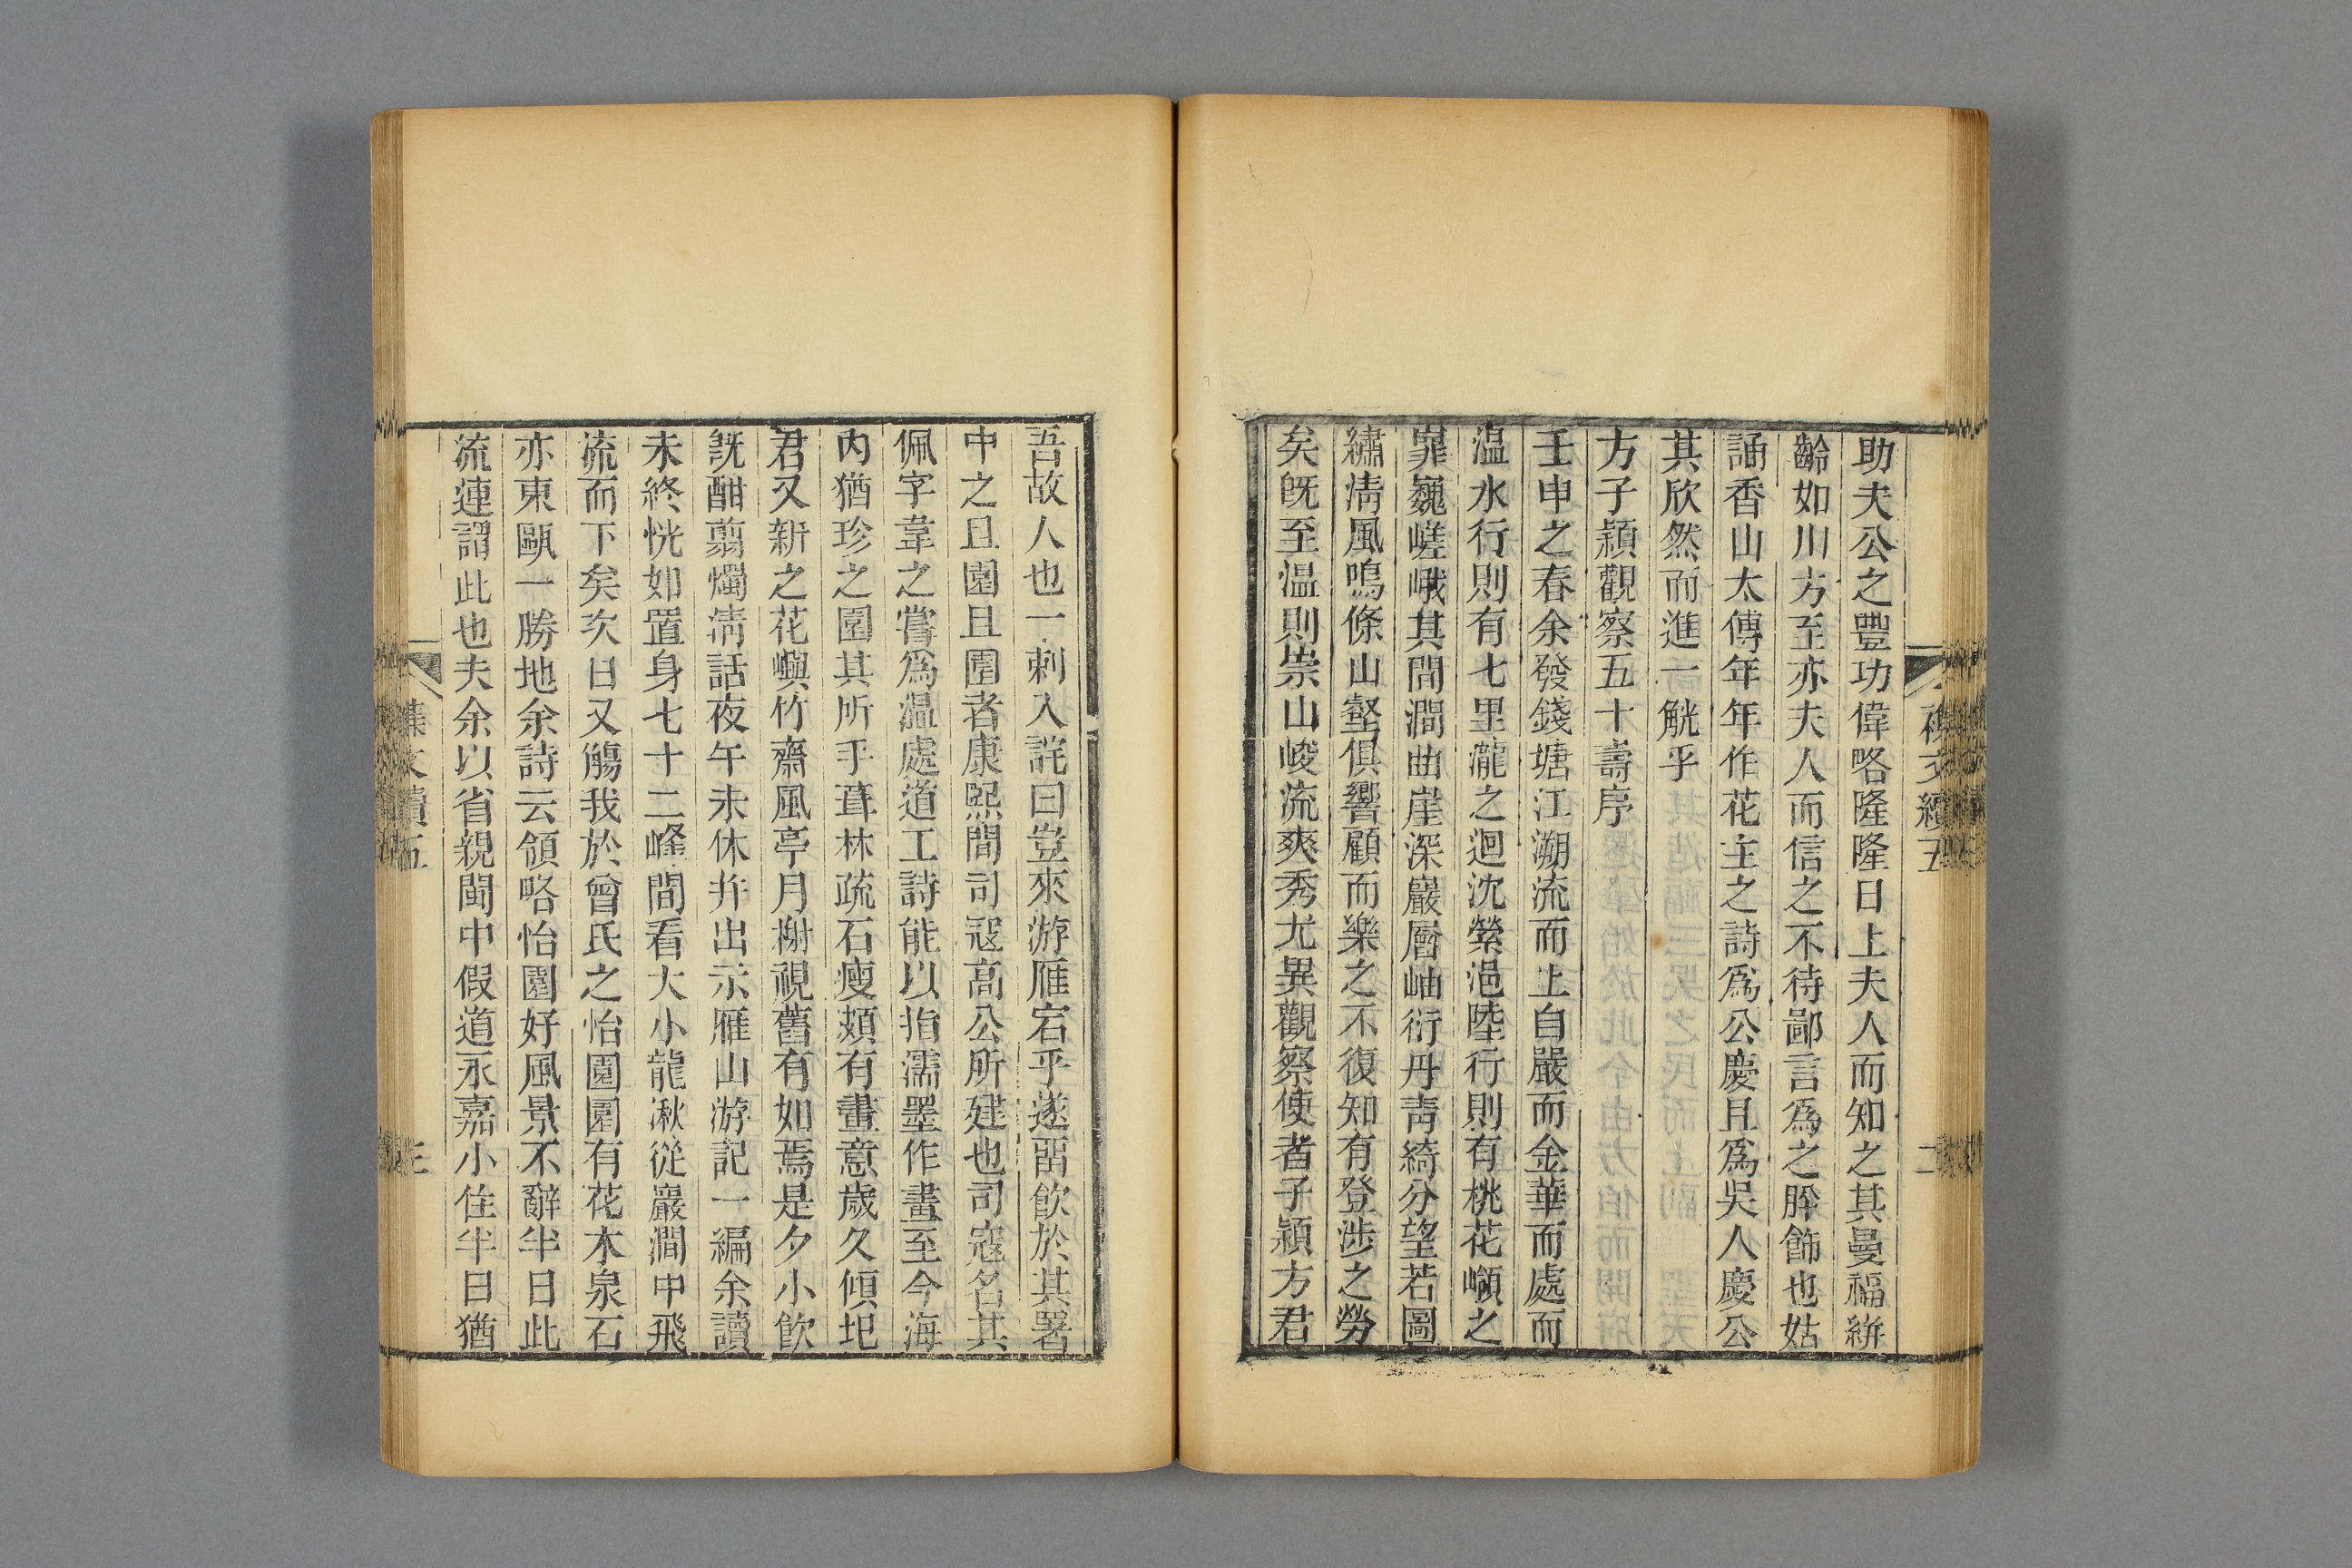 助夫公之豐功偉略隆隆日上夫人而知之其曼福緐
齡如川方至亦夫人而信之不待鄙言爲之膟飾也姑
誦香山太傅年年作花主之詩爲公慶且爲吳人慶公
其欣然而進一觥乎
方子穎觀察五十壽序
壬申之春余發錢塘江溯流而上自嚴而金華而處而
温水行則有七里瀧之迴沈縈浥陸行則有桃花嶺之
巏巍嵯峨其間澗曲崖深巖層岫衍丹靑綺分望若圖
繡淸風鳴條山壑俱響顧而樂之不復知有登涉之勞
矣旣至温則崇山峻流爽秀尤異觀察使者子穎方君
吾故人也一刺入詫曰豈來游雁宕乎遂畱飮於其署
中之且園且園者康熙間司寇高公所建也司寇名其
佩字韋之嘗爲温處道工詩能以指濡墨作畫至今海
内猶珍之園其所手葺林疏石瘦頗有畫意歲久傾圯
君又新之花嶼竹齋風亭月榭視舊有如焉是夕小飮
旣酣翦燭淸話夜午未休幷出示雁山游記一編余讀
未終恍如置身七十二峰間看大小龍湫從巖澗中飛
流而下矣次日又觴我於曾氏之怡園園有花木泉石
亦東甌一勝地余詩云領略怡園好風景不辭半日此
流連謂此也夫余以省親閩中假道永嘉小住半日猶
襍文續五
二
襍文續五
三